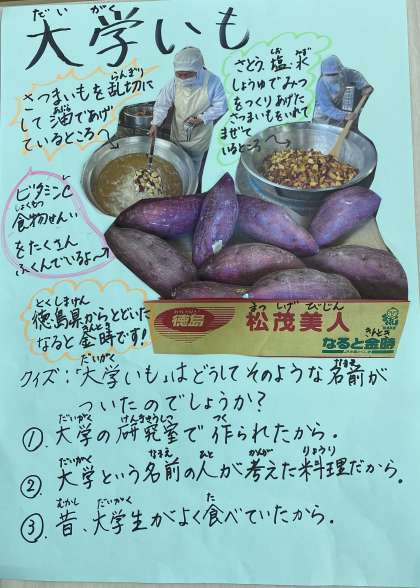 大学いも
さつまいもを乱切に
して油であげ
ているところ
さとう、塩、水
しょうゆでみつ
をつくりあげた
さつまいもをいれて
まぜて
いるところ
ビタミンC
食物せんい
をたくさん
ふくんでいるよー
徳島県からとどいた
なると金時です!
徳島
松茂美人
なると金時
クイズ:「大学いも」はどうしてそのような名前が
ついたのでしょうか?
①.大学の研究室で作られたから。
②.大学という名前の人が考えた料理だから。
③.昔、大学生がよく食べていたから。